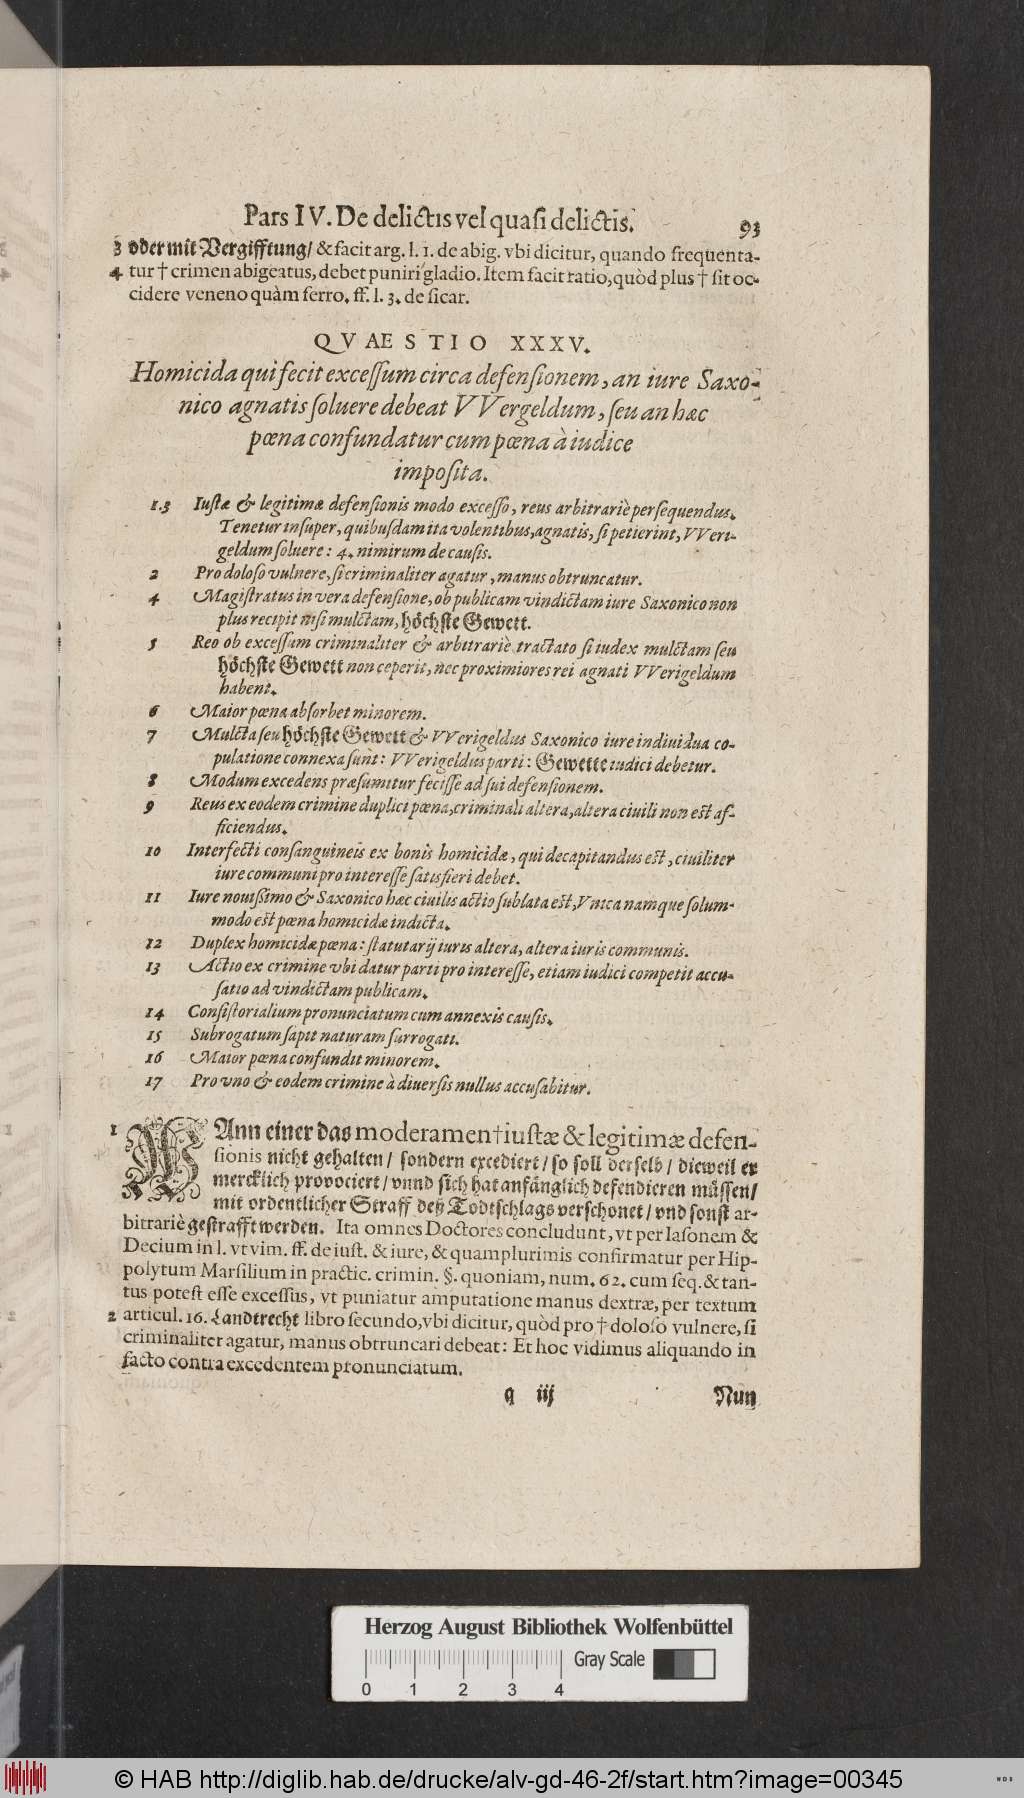 Pars IV. De delictis vel quasi delictis. 93
3 oder mit Vergifftung/ & facit arg. l. 1. de abig. vbi dicitur, quando frequenta-
4 tur † crimen abigeatus, debet puniri gladio. Item facit ratio, quòd plus † sit oc-
cidere veneno quàm ferro. ff. l. 3. de sicar.
QVAESTIO XXXV.
Homicida qui fecit excessum circa defensionem, an iure Saxo-
nico agnatis soluere debeat VVergeldum, seu an hæc
pœna confundatur cum pœna à iudice
imposita.
1.3 Iustæ & legitimæ defensionis modo excesso, reus arbitrariè persequendus.
Tenetur insuper, quibusdam ita volentibus, agnatis, si petierint, VVeri-
geldum soluere: 4. nimirum de causis.
2 Pro doloso vulnere, si criminaliter agatur, manus obtruncatur.
4 Magistratus in vera defensione, ob publicam vindictam iure Saxonico non
plus recipit nisi mulctam, höchste Gewett.
5 Reo ob excessum criminaliter & arbitrariè tractato si iudex mulctam seu
höchste Gewett non ceperit, nec proximiores rei agnati VVerigeldum
habent.
6 Maior pœna absorbet minorem.
7 Mulcta seu höchste Gewett & VVerigeldus Saxonico iure indiuidua co-
pulatione connexa sunt: VVerigeldus parti: Gewette iudici debetur.
8 Modum excedens præsumitur fecisse ad sui defensionem.
9 Reus ex eodem crimine duplici pœna, criminali altera, altera ciuili non est af-
ficiendus.
10 Interfecti consanguineis ex bonis homicidæ, qui decapitandus est, ciuiliter
iure communi pro interesse satisfieri debet.
11 Iure nouissimo & Saxonico hæc ciuilis actio sublata est, Vnica namque solum-
modo est pœna homicidæ indicta.
12 Duplex homicidæ pœna: statutarij iuris altera, altera iuris communis.
13 Actio ex crimine vbi datur parti pro interesse, etiam iudici competit accu-
satio ad vindictam publicam.
14 Consistorialium pronunciatum cum annexis causis.
15 Subrogatum sapit naturam surrogati.
16 Maior pœna confundit minorem.
17 Pro vno & eodem crimine à diuersis nullus accusabitur.
1 WAnn einer das moderamen † iustæ & legitimæ defen-
sionis nicht gehalten/ sondern excediert/ so soll derselb/ dieweil er
mercklich provociert/ vnnd sich hat anfänglich defendieren müssen/
mit ordentlicher Straff deß Todtschlags verschonet/ vnd sonst ar-
bitrariè gestrafft werden. Ita omnes Doctores concludunt, vt per Iasonem &
Decium in l. vt vim. ff. de iust. & iure, & quamplurimis confirmatur per Hip-
polytum Marsilium in practic. crimin. §. quoniam, num. 62. cum seq. & tan-
tus potest esse excessus, vt puniatur amputatione manus dextræ, per textum
2 articul. 16. Landtrecht libro secundo, vbi dicitur, quòd pro † doloso vulnere, si
criminaliter agatur, manus obtruncari debeat: Et hoc vidimus aliquando in
facto contra excedentem pronunciatum.
q iij Nun
Herzog August Bibliothek Wolfenbüttel
Gray Scale
0 1 2 3 4
© HAB http://diglib.hab.de/drucke/alv-gd-46-2f/start.htm?image=00345